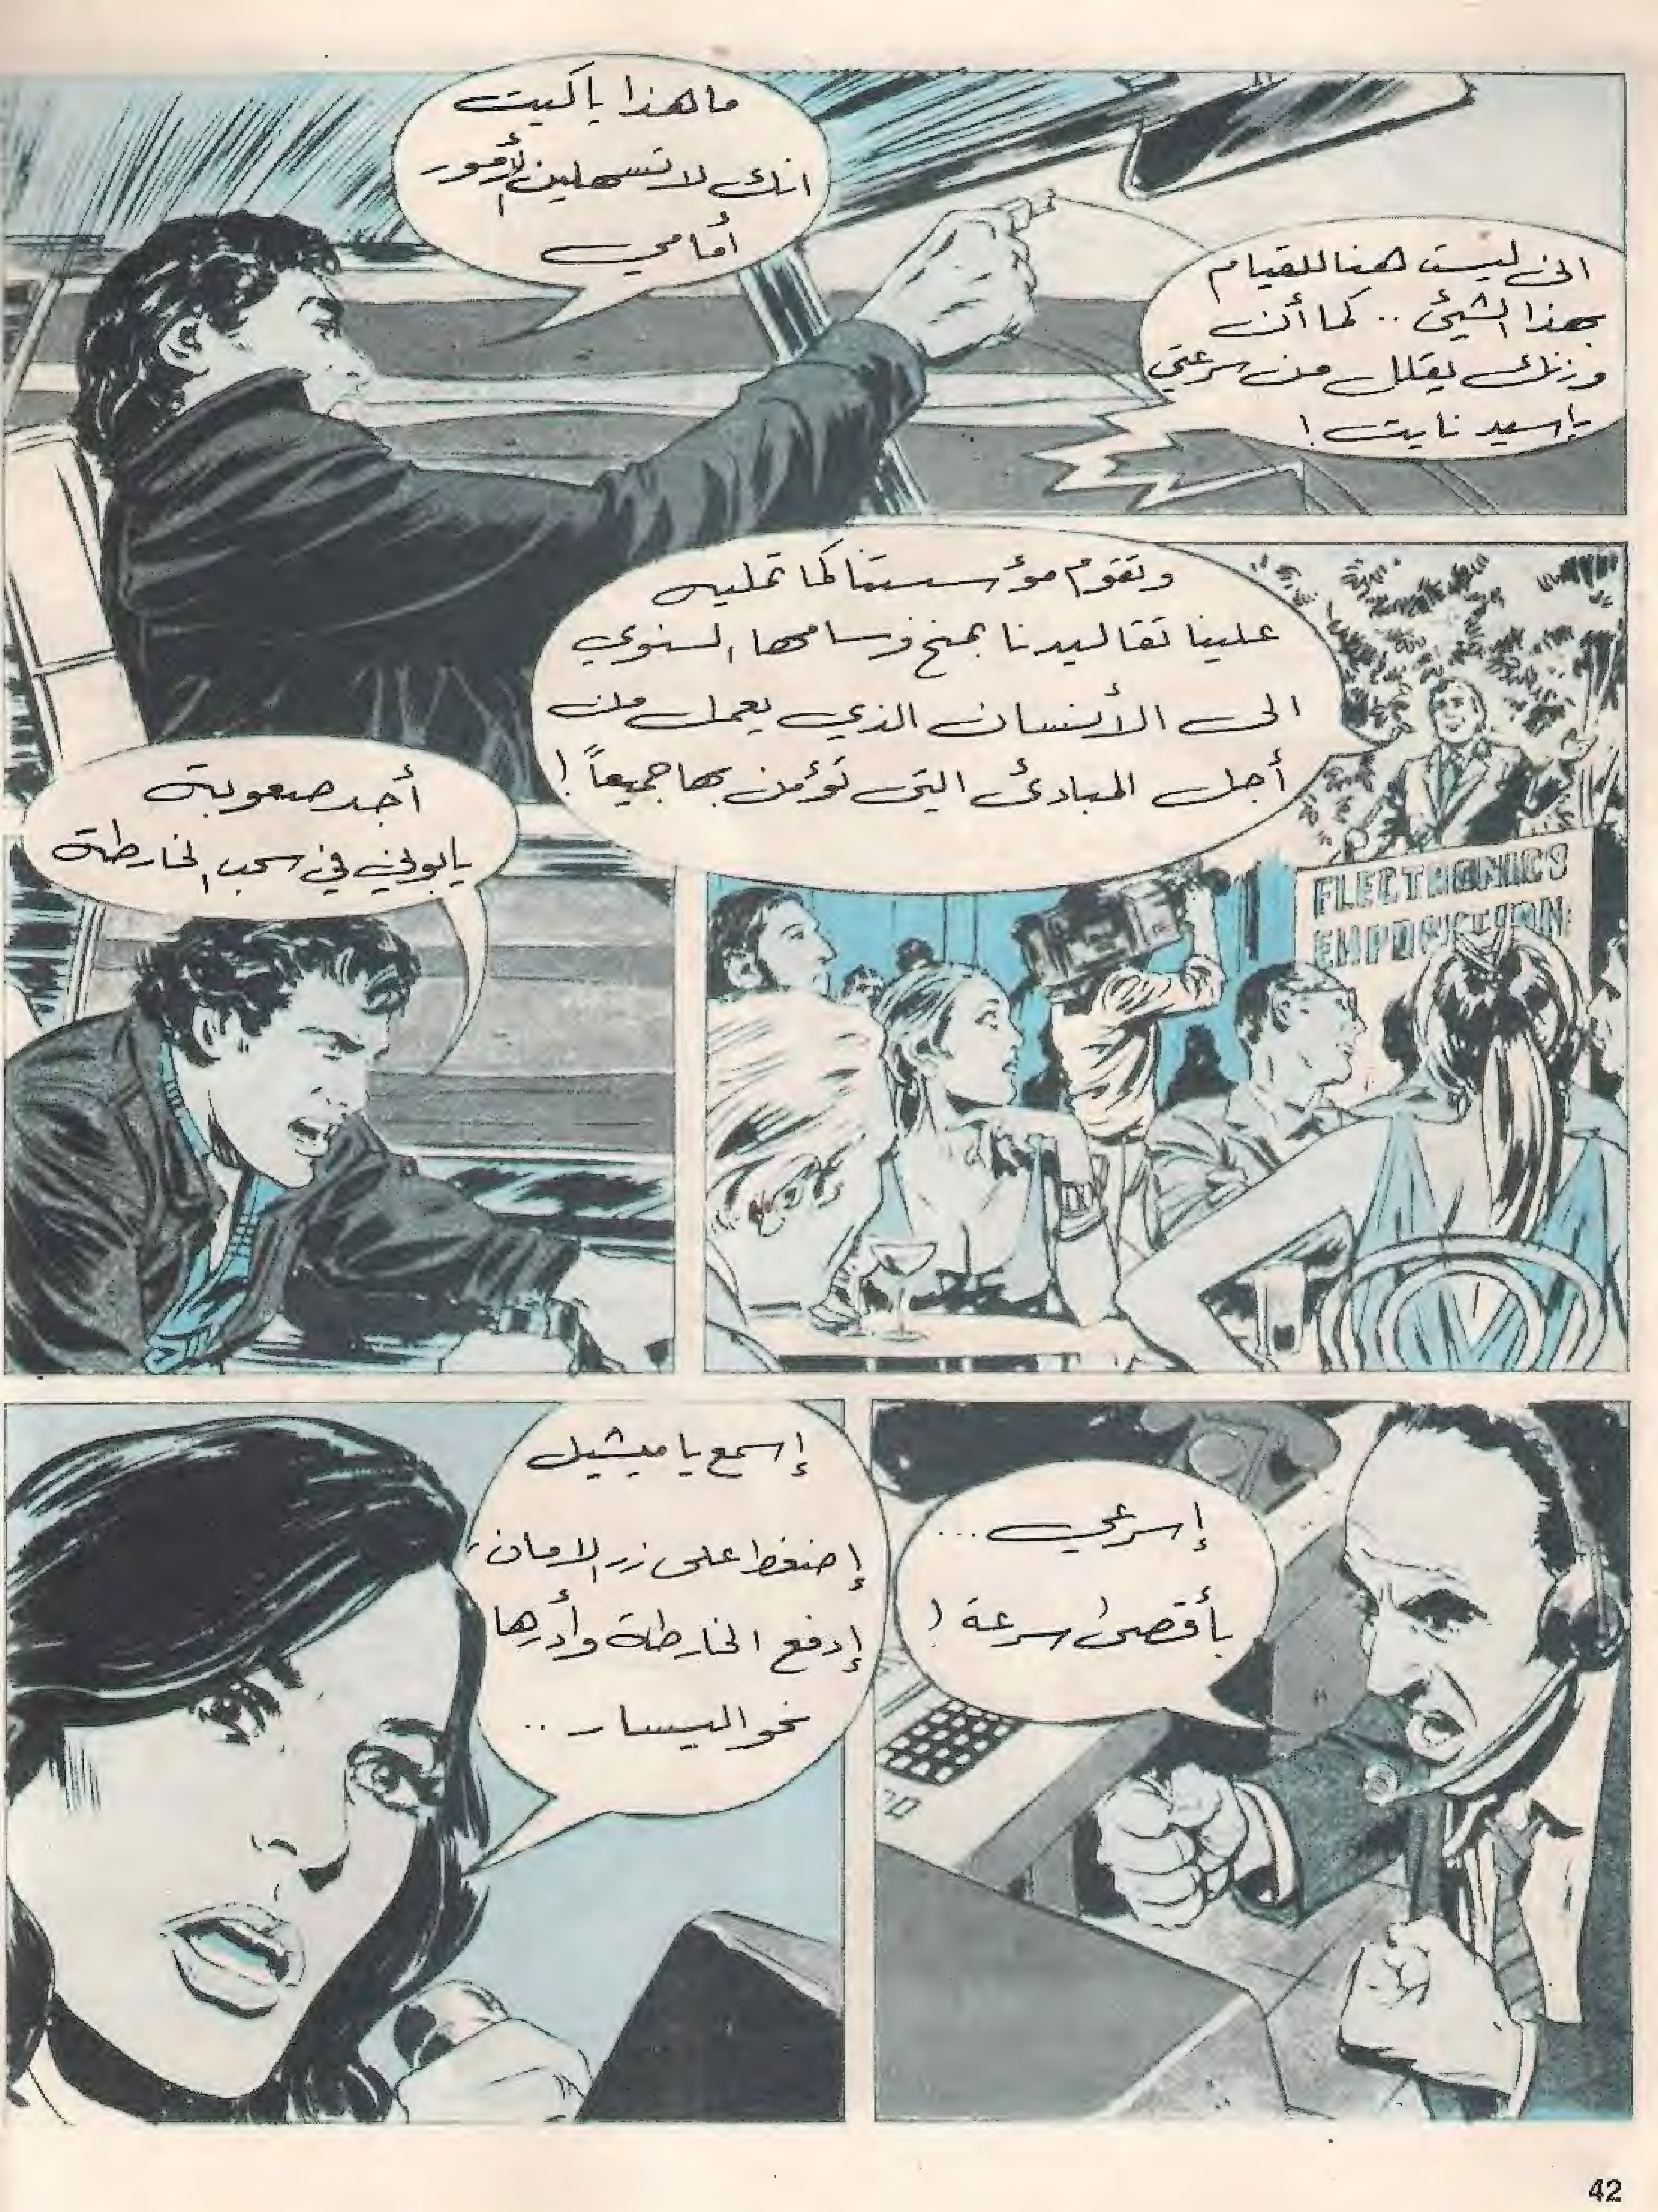 ما هذا يا كيت
انك لا تسهلين الأمور
أمامي
انني ليست هنا للقيام
بهذا الشيئ .. كما أن
وزنك يقلل من سرعتي
يا سيد نايت !
وتقوم مؤسستنا كما تمليه
علينا تقاليدنا بمنح وسامها السنوي
الى الأنسان الذي يعمل من
أجل المبادئ التي نؤمن بها جميعاً !
ELECTRONICS
أجد صعوبة
يا بوني في سحب الخارطة
إسرعي ...
بأقصى سرعة !
إسمع يا ميشيل
إضغط على زر الامان،
إدفع الخارطة وأدرها
نحو اليسار ..
42